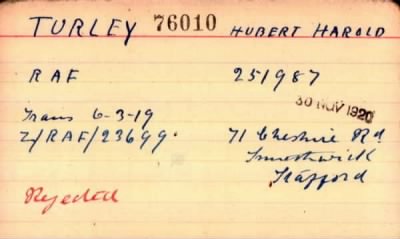 TURLEY 76010 HUBERT HAROLD
RAF 251987
30 NOV 1920
Trans 6-3-19
Z/RAF/23699. 71 Cheshire Rd
Smethwick
Stafford
Rejected